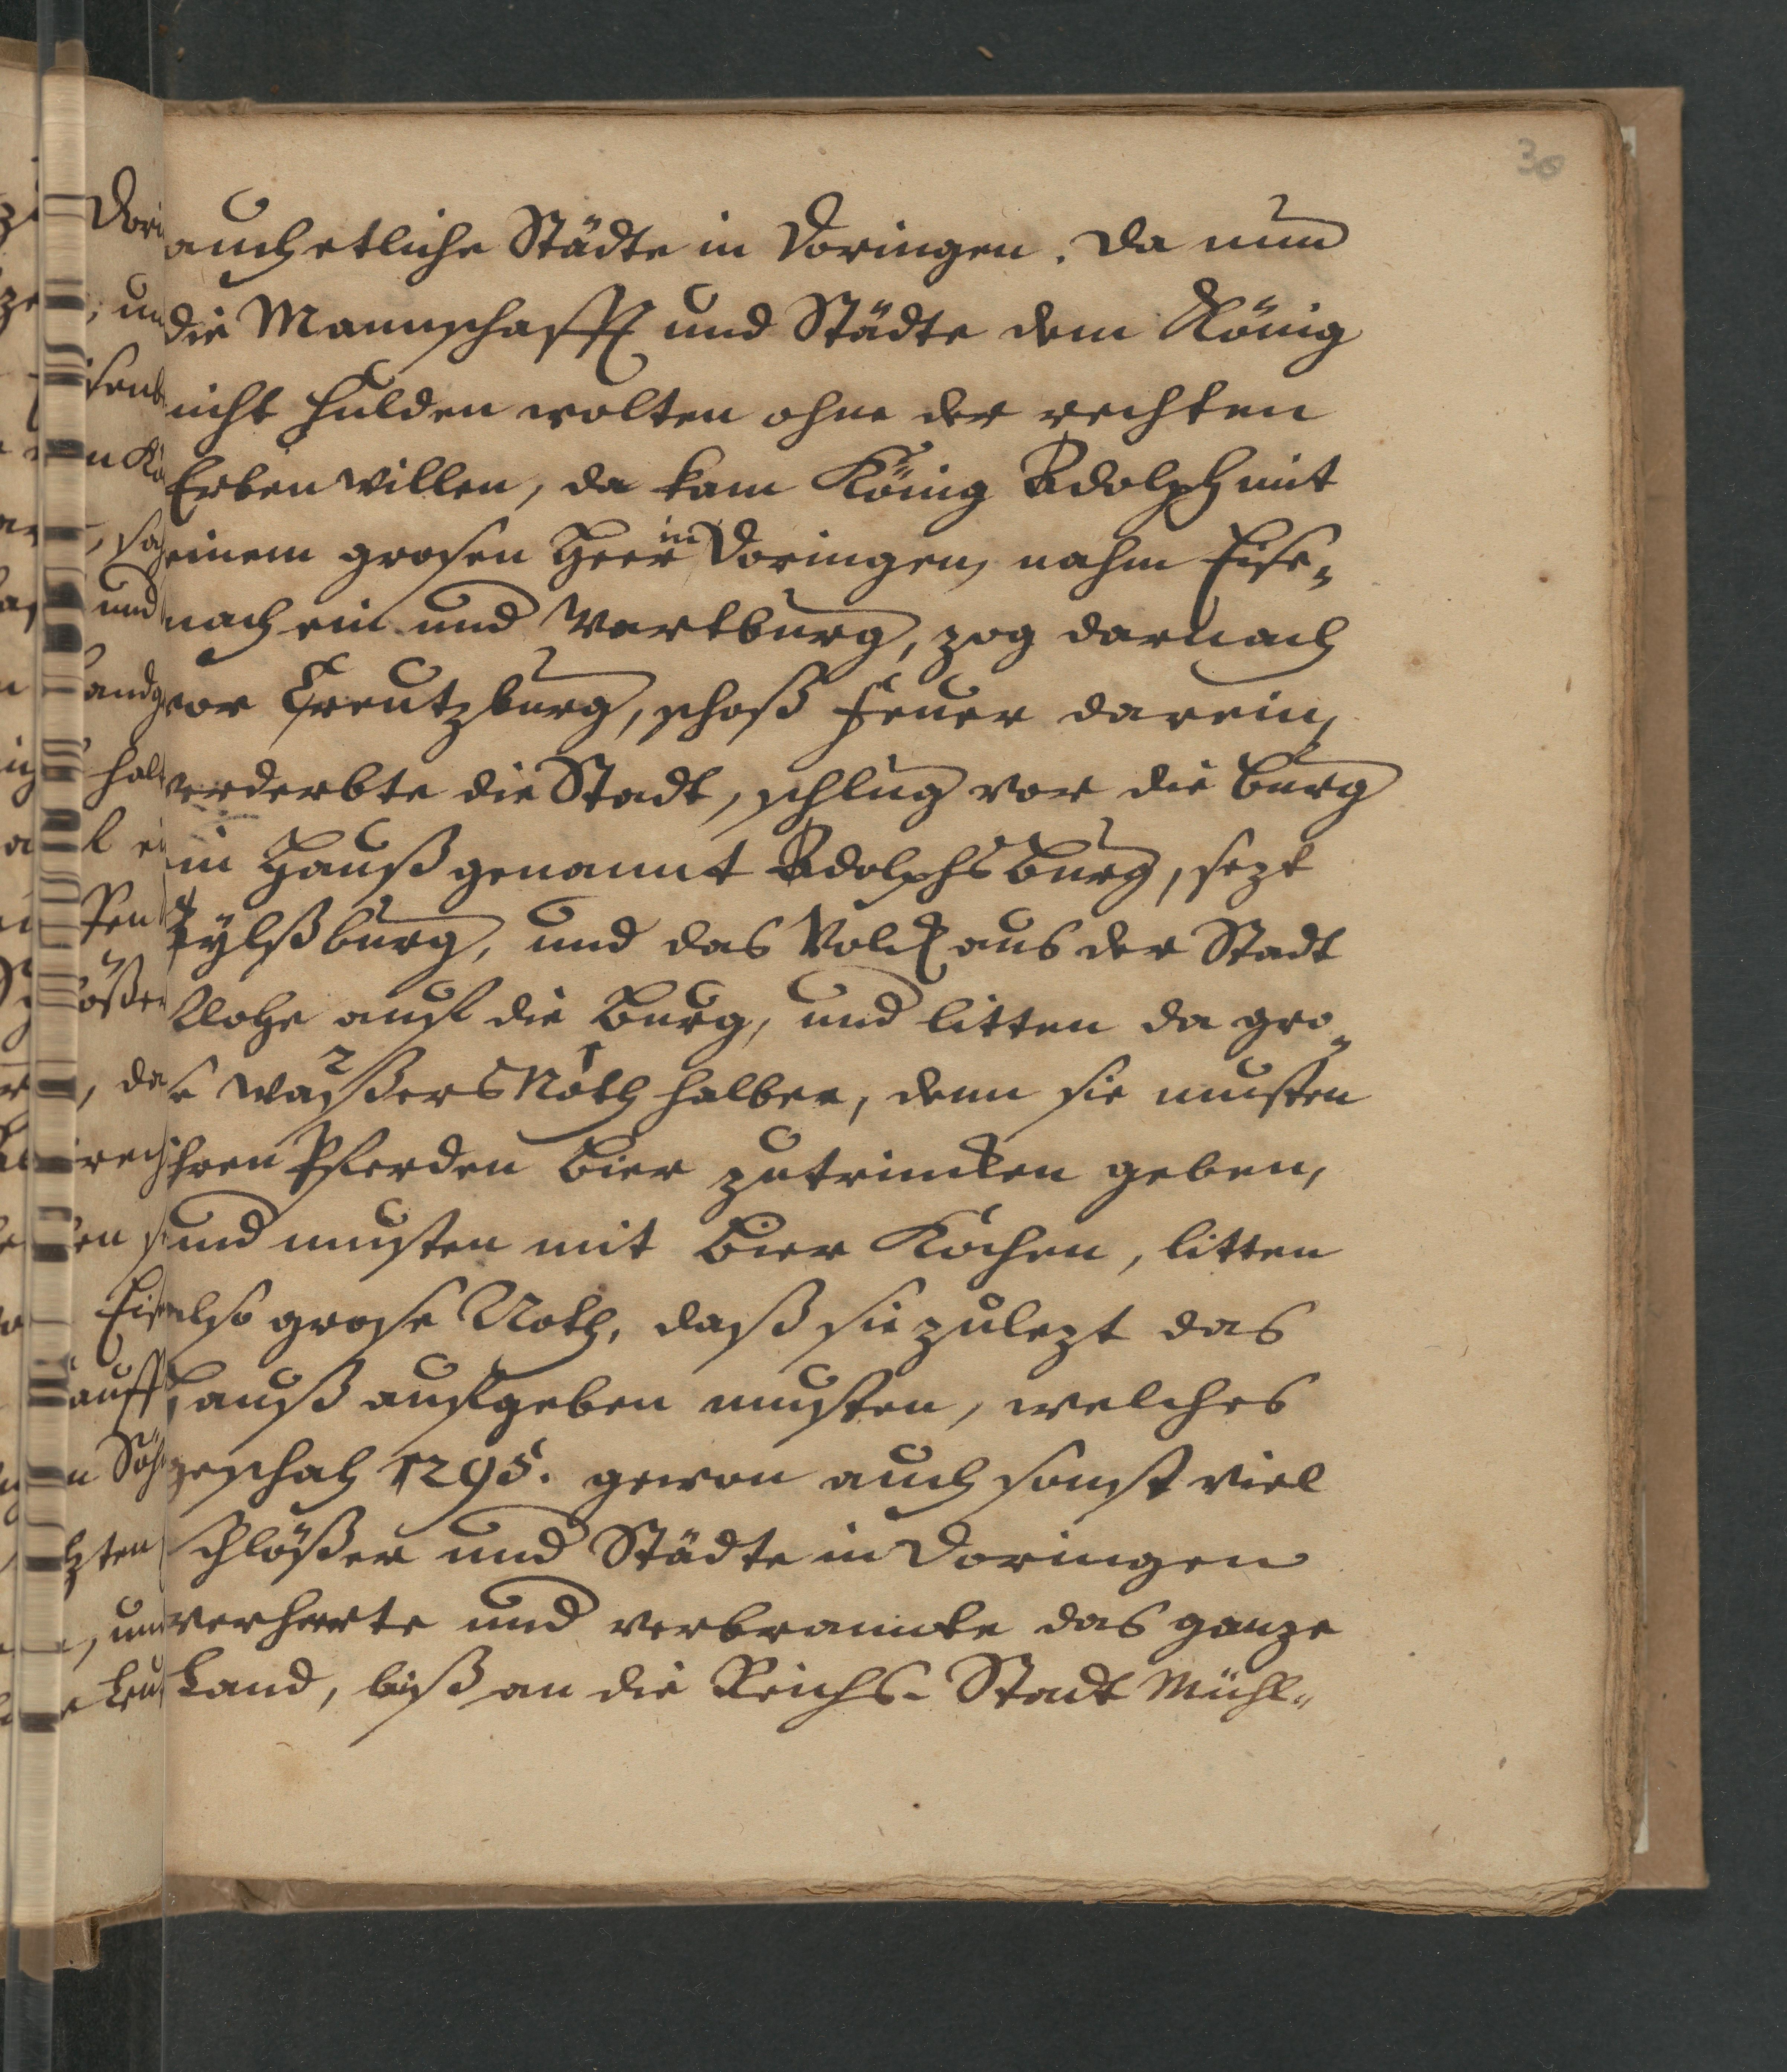 30
auch etliche Städte in Doringen. Da nun
die Mannschafft und Städte dem König
nicht hulden wolten ohne der rechten
Erben willen, da kam König Adolph mit
einem grosen Heer in Doringen, nahm Eise„
nach ein und Wartburg, zog darnach
vor Creutzburg, schoß feuer darein,
verderbte die Stadt, schlug vor die burg
ein Hauß genannt Adolphsburg, sezt
und das Volck aus der Stadt
flohe auf die Burg, und litten da gro„
se waßers Noth halber, denn sie musten
ihren Pferden bier zutrincken geben,
und musten mit bier Kochen, litten
also grose Noth, daß sie zulezt das
Hauß aufgeben musten, welches
geschah 1295. gewon auch sonst viel
schlößer und Städte in Doringen
verherte und verbrannte das ganze
Land, biß an die Reichs-Stadt Mühl„